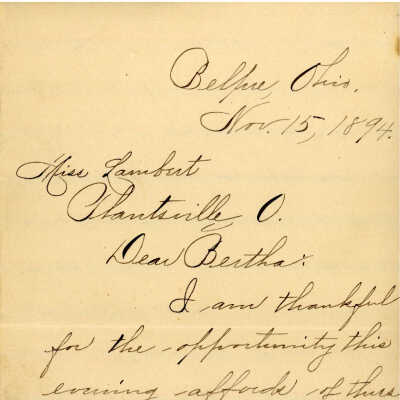 Belpre, Ohio.
Nov. 15, 1894.
Miss Lambert
Plantsville O.
Dear Bertha:
I am thankful
for the opportunity this
evening affords of thus